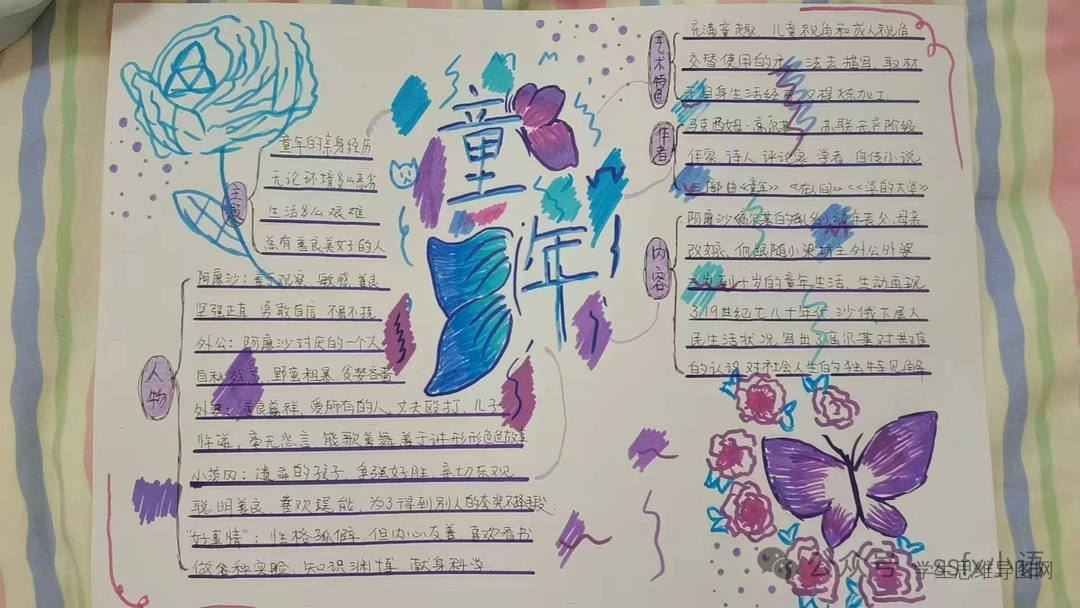 童年
艺术特色
充满童趣，儿童视角和成人视角
交替使用的 法去描写，取材
自身生活经 提炼加工.
作者
马克西姆·高尔基 苏联无产阶级
作家 诗人 评论家 学者 自传小说
三部曲《童年》《在人间》《我的大学》
内容
阿廖沙(高尔基的乳名)幼年丧父、母亲
改嫁、他跟随小染坊主外公外婆
十岁的童年生活，生动再现
了19世纪七八十年代 沙俄下层人
民生活状况，写出了高尔基对苦难
的认识 对社会人生的独特见解
主题
童年的亲身经历
无论环境多么恶劣
生活多么艰难
总有善良美好的人
人物
阿廖沙：善于观察 敏感 善良
坚强正直 勇敢自信 不屈不挠
外公：阿廖沙讨厌的一个人
自私 野蛮粗暴、贪婪吝啬
外婆：善良慈祥、爱所有的人，丈夫殴打、儿子
忤逆，毫无怨言 能歌善舞 善于讲形形色色故事
小茨冈：遗弃的孩子 争强好胜 亲切乐观
聪明善良、喜欢逞能，为了得到别人的夸奖不择手段
"好事情"：性格孤僻 但内心友善 喜欢看书
做各种实验、知识渊博、献身科学.
公众号·ssfx小语
学生思维导图网